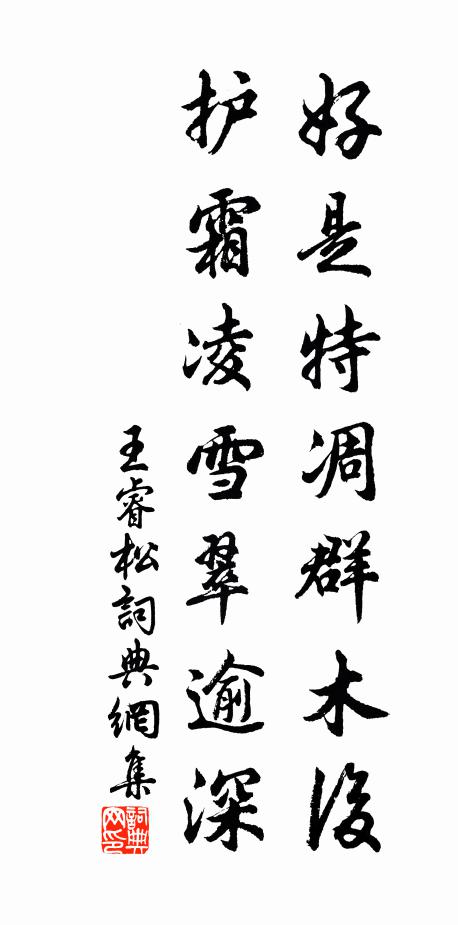 好是特凋群木後
护霜凌雪翠逾深
王睿松詞典網集
詞典网印